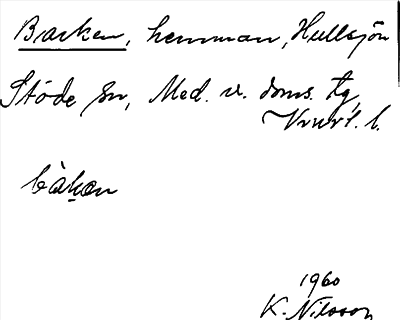 Backen, hemman, Hullsjön
Stöde sn, Med. v. doms. tg,
b.
1960
K. Nilsson